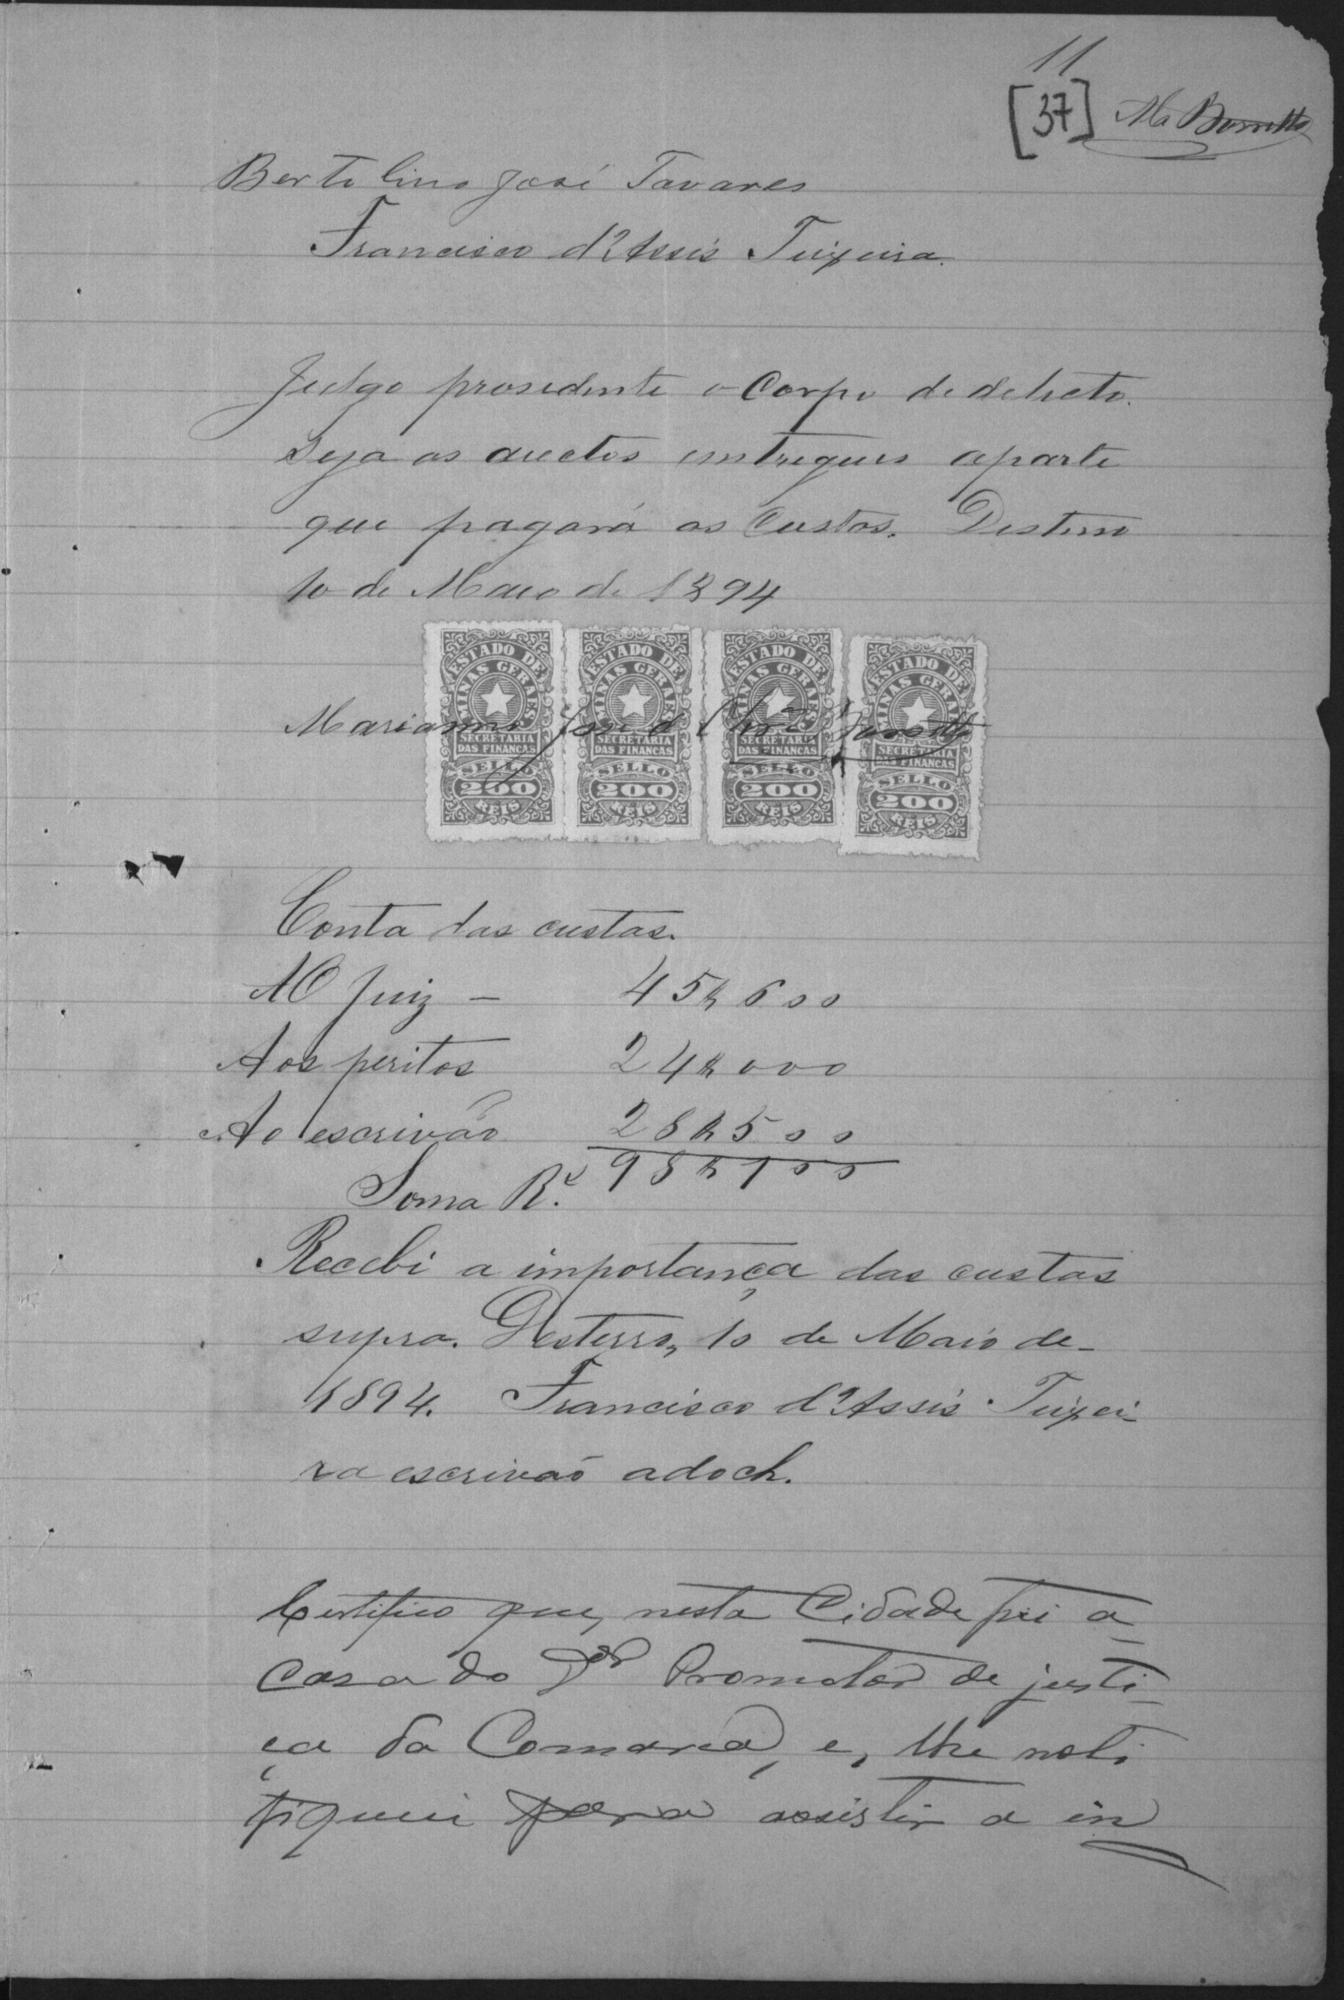 11
[37] Ma Barretto
Bertolino José Tavares
Francisco d'Assis Teixeira.
Julgo prosedente o Corpo de delicto.
Seja os auctos entregues aparte
que pagará as Custas. Desterro
10 de Maio de 1894
Marianno José d
ESTADO DE MINAS GERAES SECRETARIA DAS FINANÇAS SELLO 200 REIS
ESTADO DE MINAS GERAES SECRETARIA DAS FINANÇAS SELLO 200 REIS
ESTADO DE MINAS GERAES SECRETARIA DAS FINANÇAS SELLO 200 REIS
ESTADO DE MINAS GERAES SECRETARIA DAS FINANÇAS SELLO 200 REIS
Conta das custas.
Ao Juiz – 45$600
Aos peritos 24$000
Ao escrivão 28$500
Soma Rs. 98$100
Recebi a importança das custas
supra. Desterro, 10 de Maio de
1894. Francisco d'Assis Teixei-
ra escrivão adoch.
Certifico que, nesta Cidade fui a
casa do Dor Promotor de justi-
ça da Comarca, e, lhe noti
fiquei para assistir a in